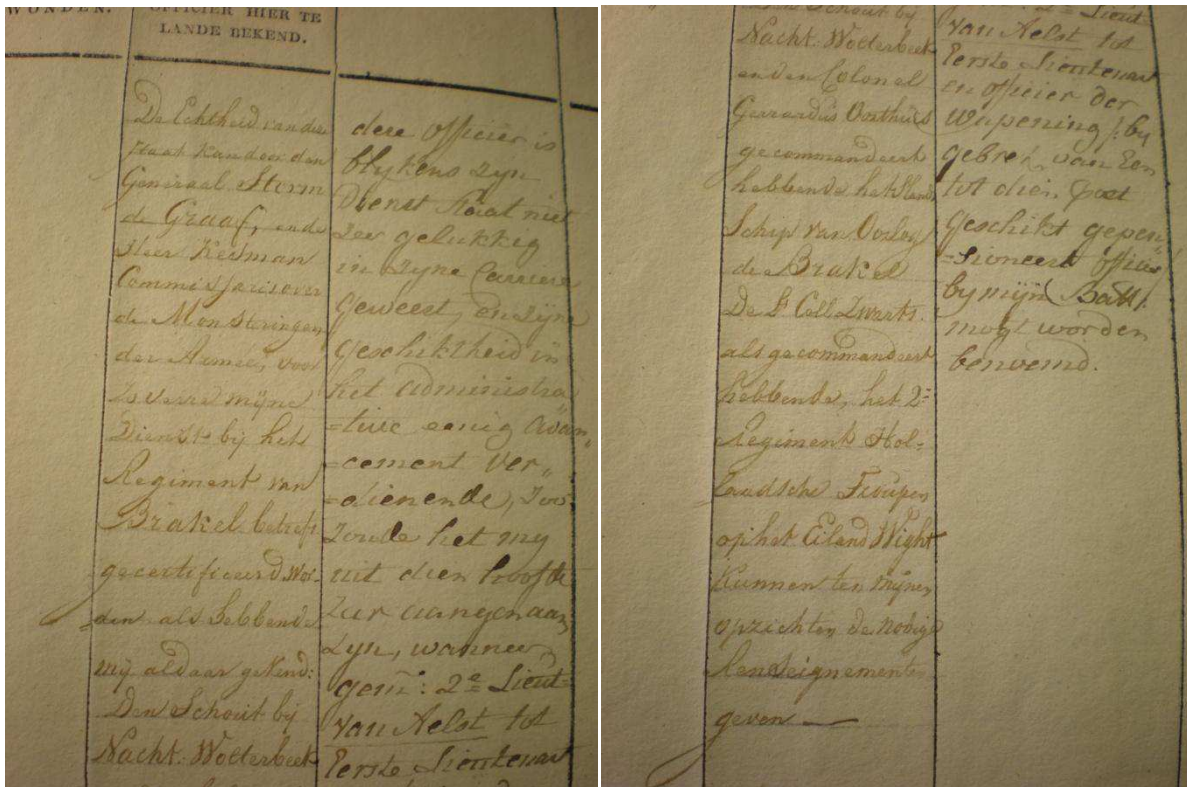 WONDEN.
OFFICIER HIER TE
LANDE BEKEND.
De Echtheid van deze
staat kan door den
Generaal Storm
de Graaf, en de
Heer Keeman
Commissaris over
de Monsteringen
der Armée, voor
zo verre mijne
Dienst bij het
Regiment van
Brakel betreft
gecertifieerd wor-
den als hebbende
mij aldaar gekend:
Den Schout bij
Nacht Wolterbeek
deze officier is
blykens zyn
Dienst staat niet
zeer gelukkig
in zyne Carriere
geweest, en zyne
geschiktheid in
het administra
=tive eenig avan„
=cement ver„
=dienende, zoo
zoude het my
uit dien hoofde
zeer aangenaam
zyn, wanneer
gem: 2e Lieut=
van Aelst tot
Eerste Lieutenant
Den Schout bij
Nacht Wolterbeek
en den Colonel
Gerardus Oorthuis
gecommandeert
hebbende het 's Lands
Schip van Oorlog
de Brakel
De Lt Coll Zwarts
als gecommandeert
hebbende, het 2e
Regiment Hol-
landsche Troupen
op het Eiland Wight
kunnen ten mijnen
opzichten de nodige
Renseignementen
geven —
2e Lieut
van Aelst tot
Eerste Lieutenant
en officier der
wapening /: by
gebrek van Een
tot dien post
geschikt gepen„
=sioneert officier/
by mijn Batt:
mogt worden
benoemd.